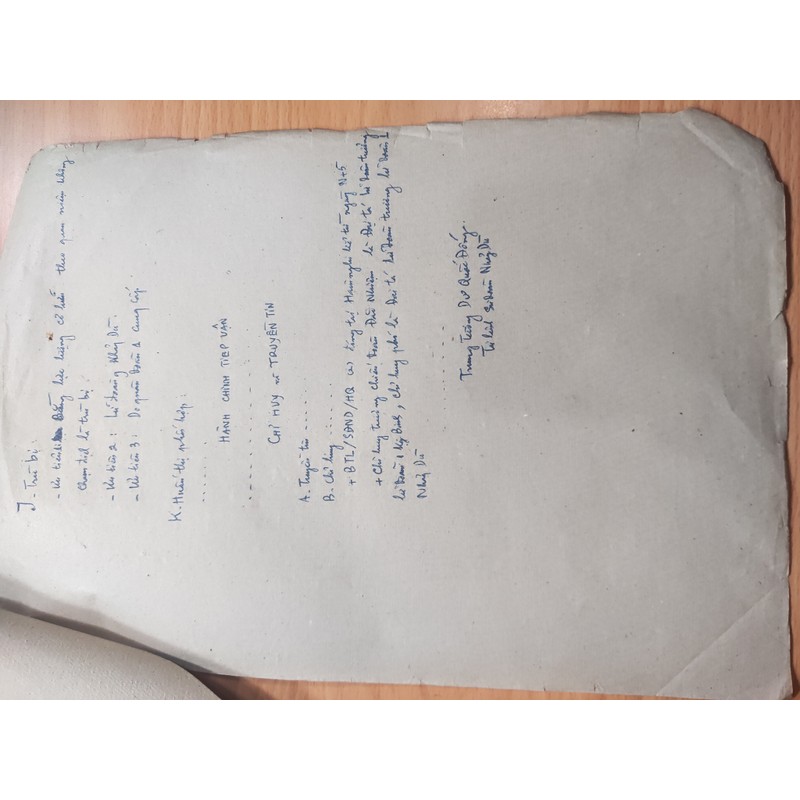 J - Trừ bị:
- Ưu tiên 1: Bằng lực lượng cơ hữu theo quan niệm không
chạm địch là trừ bị.
- Ưu tiên 2: Lữ đoàn 9 Nhảy Dù.
- Ưu tiên 3: Do quân đoàn 1 cung cấp
K. Huấn thị phối hợp:
.......
HÀNH CHÍNH TIẾP VẬN
- - - - - - - - - - - - -
CHỈ HUY và TRUYỀN TIN
A. Truyền tin ------
B. Chỉ huy ------
+ BTL/SĐND/HQ đóng tại kể từ ngày N+5
+ Chỉ huy trưởng chiến đoàn Đặc Nhiệm là Đại tá lữ đoàn trưởng
lữ đoàn 1 Kỵ Binh, chỉ huy phó là Đại tá lữ đoàn trưởng lữ đoàn 1
Nhảy Dù
.........
Trung Tướng Dư Quốc Đống
Tư lệnh Sư đoàn Nhảy Dù